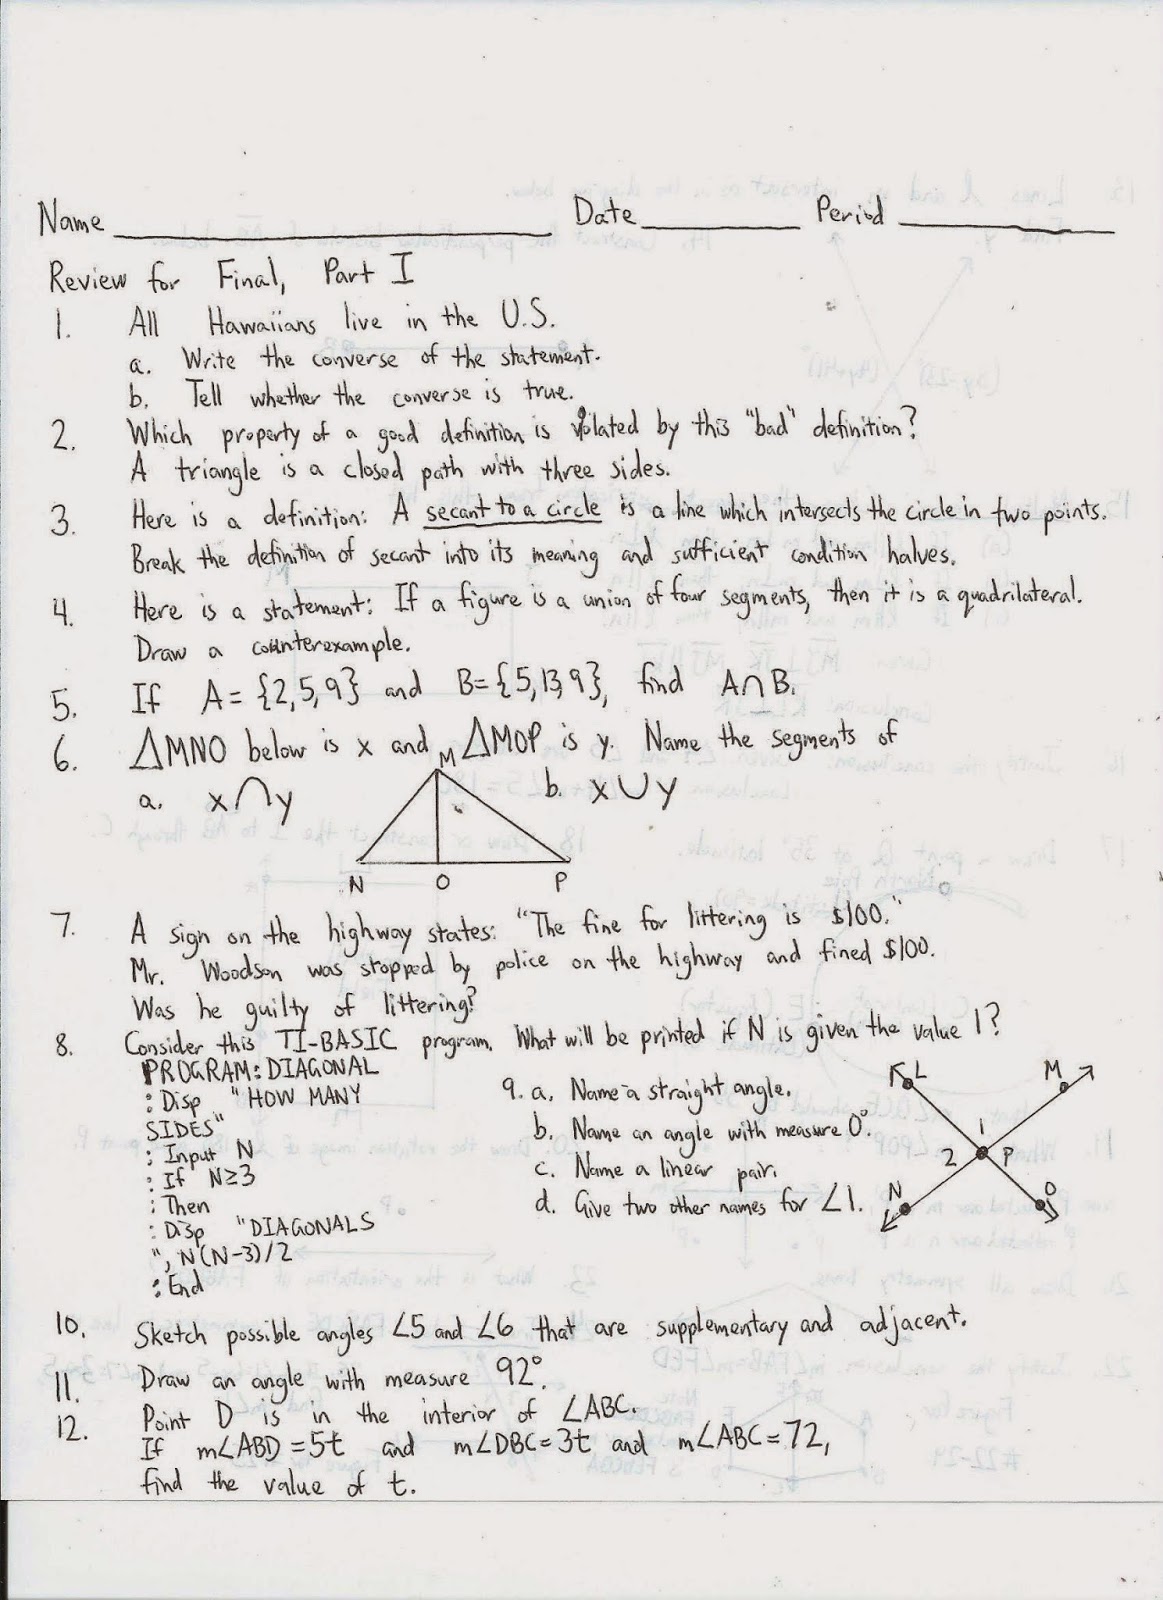 Name Date Period
Review for Final, Part I
1. All Hawaiians live in the U.S.
a. Write the converse of the statement.
b. Tell whether the converse is true.
2. Which property of a good definition is violated by this "bad" definition?
A triangle is a closed path with three sides.
3. Here is a definition: A secant to a circle is a line which intersects the circle in two points.
Break the definition of secant into its meaning and sufficient condition halves.
4. Here is a statement: If a figure is a union of four segments, then it is a quadrilateral.
Draw a counterexample.
5. If A = {2,5,9} and B={5,13,9}, find A∩B.
6. △MNO below is x and △MOP is y. Name the segments of
a. x∩y b. x∪y
M
N O P
7. A sign on the highway states: "The fine for littering is $100."
Mr. Woodson was stopped by police on the highway and fined $100.
Was he guilty of littering?
8. Consider this TI-BASIC program. What will be printed if N is given the value 1?
PROGRAM:DIAGONAL
:Disp "HOW MANY
SIDES"
:Input N
:If N≥3
:Then
:Disp "DIAGONALS
", N(N-3)/2
:End
9. a. Name a straight angle.
b. Name an angle with measure 0°.
c. Name a linear pair.
d. Give two other names for ∠1.
L M
1
2 P
N O
10. Sketch possible angles ∠5 and ∠6 that are supplementary and adjacent.
11. Draw an angle with measure 92°.
12. Point D is in the interior of ∠ABC.
If m∠ABD=5t and m∠DBC=3t and m∠ABC=72,
find the value of t.